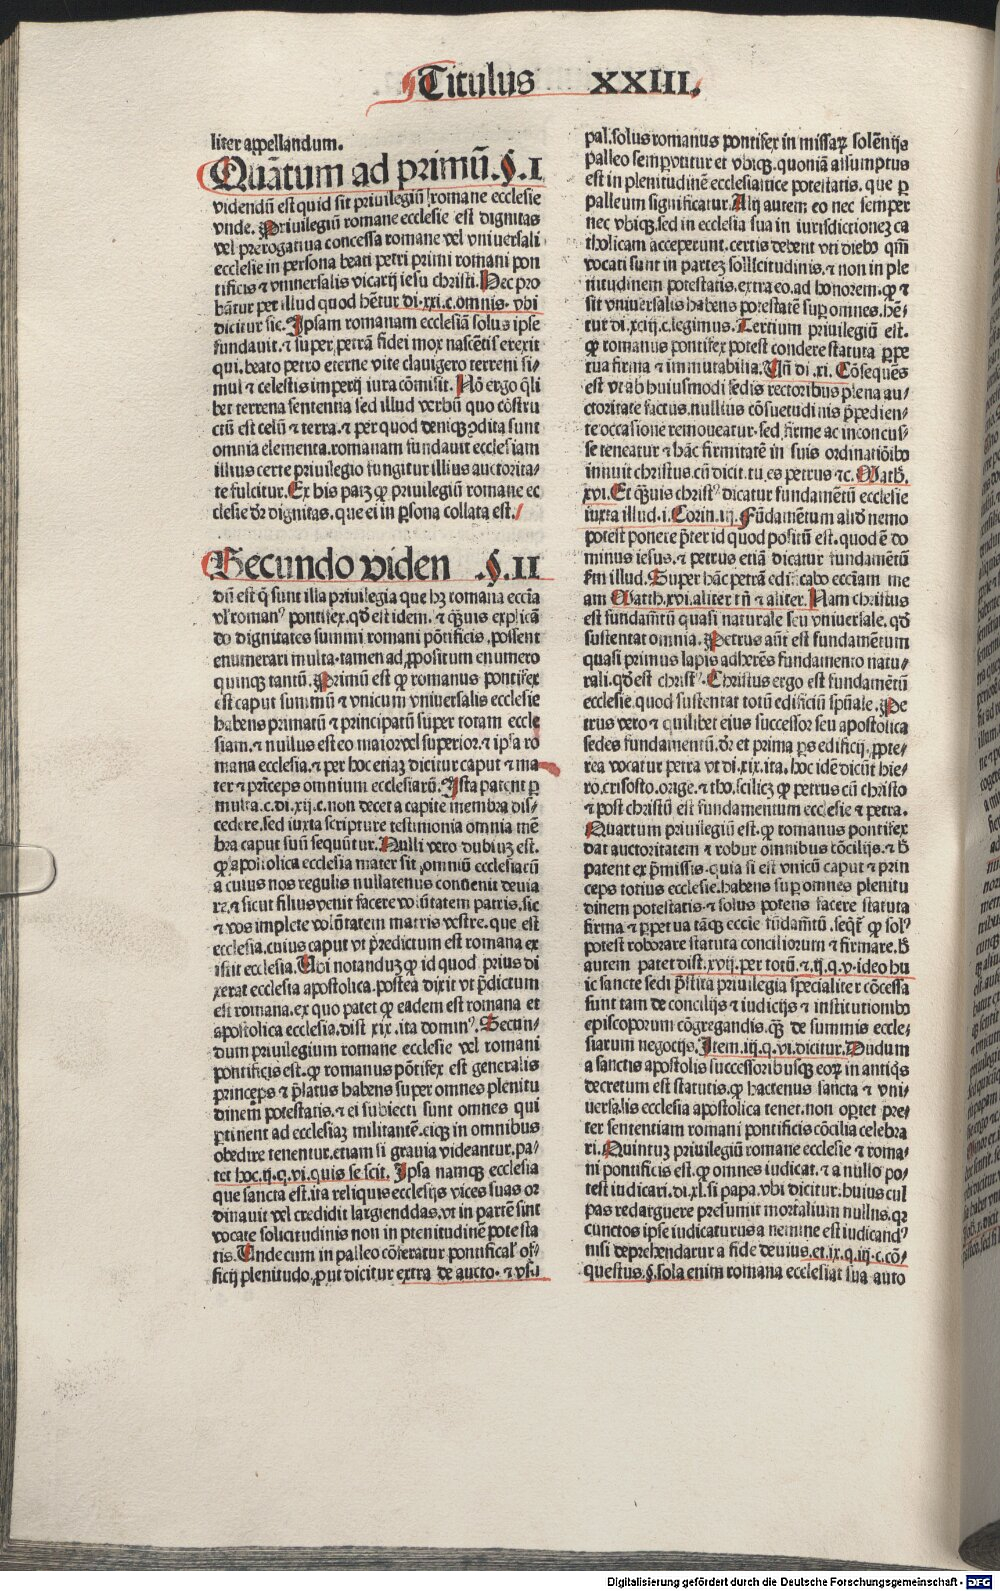 Titulus XXIII.
liter appellandum.
Quātum ad primū.§.I
videndū est quid sit priuilegiū romane ecclesie
vnde. Priuilegiū romane ecclesie est dignitas
vel prerogatiua concessa romane vel vniuersali
ecclesie in persona beati petri primi romani pon
tificis ⁊ vniuersalis vicarij iesu christi. Nec pro
bātur per illud quod hētur di.xxi.c.omnis. vbi
dicitur sic. Ipsam romanam ecclesiā solus ipse
fundauit.⁊ super petrā fidei mox nascētis erexit
qui.beato petro eterne vite clauigero terreni si⸗
mul ⁊ celestis imperij iura cōmisit. Nō ergo q̄li
bet terrena sententia sed illud verbū quo cōstru
ctū est celū ⁊ terra.⁊ per quod deniqꝫ ꝯdita sunt
omnia elementa.romanam fundauit ecclesiam
illius certe priuilegio fungitur illius auctorita⸗
te fulcitur. Ex his patꝫ ꝙ priuilegiū romane ec
clesie dr̄ dignitas.que ei in ꝑsona collata est.
Secundo viden .§.II
dū est q̄ sunt illa priuilegia que hꝫ romana ecc̄ia
vl' romanꝰ pontifex.qd̄ est idem. ⁊ q̄uis explicā
do dignitates summi romani pōtificis.possent
enumerari multa.tamen ad ꝓpositum enumero
quinqꝫ tantū. Primū est ꝙ romanus pontifex
est caput summū ⁊ vnicum vniuersalis ecclesie
habens primatū ⁊ principatū super totam eccle
siam.⁊ nullus est eo maior vel superior.⁊ ipsa ro
mana ecclesia.⁊ per hoc etiaꝫ dicitur caput ⁊ ma
ter ⁊ prīceps omnium ecclesiarū. Ista patent ꝑ
multa.c.di.xij.c.non decet a capite membra dis⸗
cedere.sed iuxta scripture testimonia omnia mē
bra caput suū sequūtur. Nulli vero dubiuꝫ est.
ꝙ apostolica ecclesia mater sit omniū ecclesiarū
a cuius nos regulis nullatenus conuenit deuia
re.⁊ sicut filius venit facere volūtatem patris.sic
⁊ vos implete volūtatem matris vestre.que est
ecclesia.cuius caput vt p̄edictum est romana ex
istit ecclesia. Ubi notanduꝫ ꝙ id quod prius di
xerat ecclesia apostolica.postea dixit vt p̄dictum
est romana.ex quo patet ꝙ eadem est romana et
apostolica ecclesia.dist xix.ita dominꝰ. Secun⸗
dum priuilegium romane ecclesie vel romani
pontificis est.ꝙ romanus pōtifex est generalis
princeps ⁊ p̄latus habens super omnes plenitu
dinem potestatis.⁊ ei subiecti sunt omnes qui
ꝑtinent ad ecclesiaꝫ militantē.eiqꝫ in omnibus
obedire tenentur.etiam si grauia videantur.pa⸗
tet hoc.ij.q.vi.quis se scit. Ipsa namqꝫ ecclesia
que sancta est.ita reliquis ecclesijs vices suas or
dinauit vel credidit largiendas.vt in partē sint
vocate solicitudinis non in plenitudinē potesta
tis. Unde cum in palleo cōferatur pontifical' of⸗
ficij plenitudo.ꝓut dicitur extra de aucto. ⁊ vsu
pal.solus romanus pontifex in missaꝝ solēnijs
palleo semꝑ vtitur et vbiqꝫ.quoniā assumptus
est in plenitudinē ecclesiastice potestatis. que ꝑ
palleum significatur. Alij autem eo nec semper
nec vbiqꝫ.sed in ecclesia sua in iurisdictioneꝫ ca
tholicam acceperunt.certis debent vti diebꝰ qm̄
vocati sunt in parteꝫ sollicitudinis.⁊ non in ple
nitudinem potestatis.extra eo.ad honorem.ꝙ ⁊
sit vniuersalis habens potestatē suꝑ omnes.hē⸗
tur di.xciij.c.legimus. Tertium priuilegiū est.
ꝙ romanus pontifex potest condere statuta ꝑpe
tua firma ⁊ immutabilia. Un̄ di.xi. Cōsequēs
est vt ab huiusmodi sedis rectoribus plena au⸗
ctoritate factus.nullius cōsuetudinis p̄pedien⸗
te occasione remoueatur.sed firme ac inconcus⸗
se teneatur ⁊ hāc firmitatē in suis ordinatiōibꝰ
innuit christus.cū dicit.tu es petrus ⁊c. Math.
xvi. Et q̄uis christꝰ dicatur fundamētū ecclesie
iuxta illud.i. Corin.iij. Fūdamētum aliud nemo
potest ponere p̄ter id quod positū est.quod ē do
minus iesus.⁊ petrus etiā dicatur fundamētū
ẜm illud. Super hāc petrā edificabo ecc̄iam me
am Matth.xvi.aliter tn̄ ⁊ aliter. Nam christus
est fundam̄tū quasi naturale seu vniuersale.qd̄
sustentat omnia. Petrus aūt est fundamētum
quasi primus lapis adherēs fundamento natu⸗
rali.qd̄ est christꝰ. Christus ergo est fundamētū
ecclesie.quod sustentat totū edificiū sp̄uale. Pe
trus vero ⁊ quilibet eius successor seu apostolica
sedes fundamentū.dr̄ et prima ꝑs edificij.ꝓpte⸗
rea vocatur petra vt di.xix.ita. hoc idē dicūt hie⸗
ro.crisosto.orige.⁊ tho.scilicꝫ ꝙ petrus cū christo
⁊ post christū est fundamentum ecclesie ⁊ petra.
Quartum priuilegiū est.ꝙ romanus pontifex
dat auctoritatem ⁊ robur omnibus cōcilijs.⁊ ħ
patent ex p̄missis.quia si est vnicū caput ⁊ prin
ceps totius ecclesie.habens suꝑ omnes plenitu
dinem potestatis.⁊ solus potens facere statuta
firma ⁊ ꝑpetua tāqꝫ eccie fūdam̄tū.seq̄t' ꝙ solꝰ
potest roborare statuta conciliorum ⁊ firmare.ħ
autem patet dist.xvij.per totū.⁊.ij.q.v.ideo hu
ic sancte sedi p̄stita priuilegia specialiter cōcessa
sunt tam de concilijs ⁊ iudicijs ⁊ institutionibꝰ
episcoporum cōgregandis.q̄ꝫ de summis eccle⸗
siarum negocijs. Item.iij.q.vi.dicitur. Dudum
a sanctis apostolis successoribusqꝫ eoꝝ in antiqs
decretum est statutis.ꝙ hactenus sancta ⁊ vni⸗
uersalis ecclesia apostolica tenet.non oꝑtet pre⸗
ter sententiam romani pontificis cōcilia celebra
ri. Quintuꝫ priuilegiū romane ecclesie ⁊ roma⸗
ni pontificis est.ꝙ omnes iudicat.⁊ a nullo po⸗
test iudicari.di.xl.si papa.vbi dicitur.huius cul
pas redarguere presumit mortalium nullus.qꝛ
cunctos ipse iudicaturus a nemine est iudicandꝰ
nisi deprehendatur a fide deuius.et.ix.q.iij.c.cō⸗
questus.§.sola enim romana ecclesiat sua auto
Digitalisierung gefördert durch die Deutsche Forschungsgemeinschaft - DFG